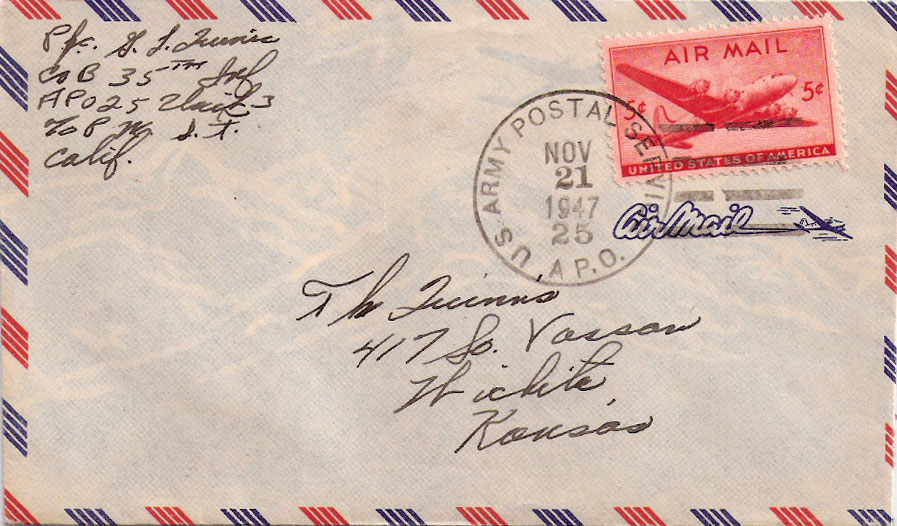 Pfc. G. L.
Co B 35TH Inf
APO 25 Unit 3
% P M S. F.
Calif.
AIR MAIL
5¢ 5¢
UNITED STATES OF AMERICA
U.S. ARMY POSTAL SERVI
NOV
21
1947
25
A.P.O.
Air Mail
The
417 So. Vassar
Wichita,
Kansas